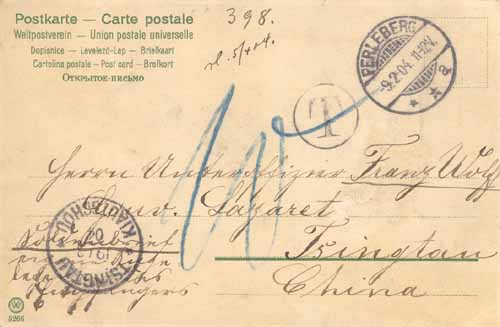 Postkarte — Carte postale
Weltpostverein — Union postale universelle
Dopisnice — Levelező-Lap — Briefkaart
Cartolina postale — Post card — Brefkort
Открытое письмо
398.
PERLEBERG
-9.2.04. 11-12V.
a
T
Herrn Unteroffizier Franz
Gouv. Lazaret
Tsingtau
China
Soldatenbrief
TSINGTAU
KIAUTSCHOU
W
5266